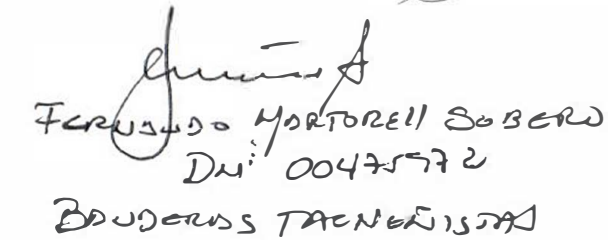 FERNANDO MARTORELL SOBERO
DNI: 00475972
BANDERAS TACNEÑISTAS